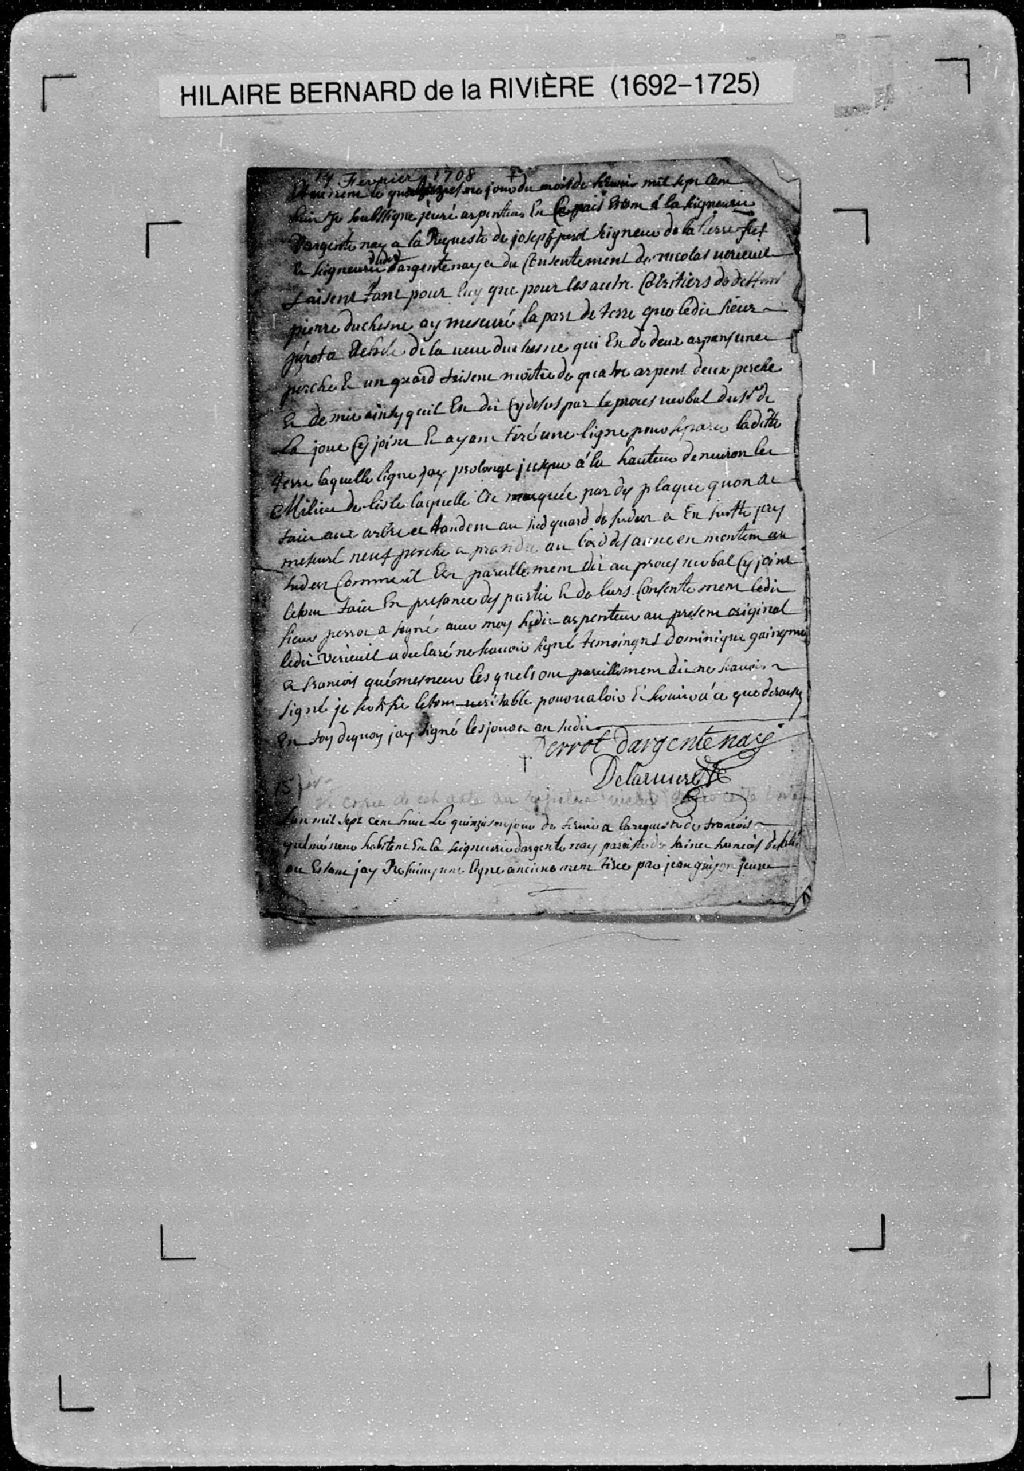 HILAIRE BERNARD de la RIVIÈRE (1692–1725)
14 Fevrier 1708
le jour du mois de mil sept Cent
huit Je soubsigné juré arpenteur En Ce pais Estem à la seigneurie
Dargentenay a la Requeste de joseph seigneur de la
Seigneurie dargentenay & du Consentement de nicolas verieuil
faisent tant pour luy que pour les autre Coeritiers de deffunt
pierre duchesne ay mesuré la part de terre que ledit sieur
de la veuve duchesne qui Est de deux arpens une
perche & un quard faisent moitié de quatre arpent deux perche
& demie ainsy queil En dit Cy desus par le proces verbal du Sr de
La joue Cy joint & ayant tiré une ligne pour separer laditte
terre laquelle ligne jay prolongé jusque à la hauteur denviron le
Milieu de lisle laquelle Est marquée par des plaque quon a
fait aux arbre et tandem au sud quard de sudest & En suitte jay
mesuré neuf perche a prandre au bord des en montem au
sudest Comme il Est pareillemem dit au proces verbal Cy joint
letout fait En presence des partie & de leurs Consentemem ledit
sieur perrot a signé avec moy sudit arpenteur au present original
ledit verieuil a declaré ne scavoir signé temoingns dominique
& francois quemeneur lesquels ont pareillemem dit ne scavoir
signé je sertifie letout veritable pour valoir & servir à ce que de raison
En foy dequoy jay signé les jour & an sudit
Perrot Dargentenay
Delariviere
15 fev
copie de cet acte au
Lan mil sept cent huit Le quinziesme jour de fevrier a la requeste de francois
quemeneur habitent En la seigneurie dargentenay paroisse de saint francois
ou Estant jay une ligne anciennemem tirée par jean guyon